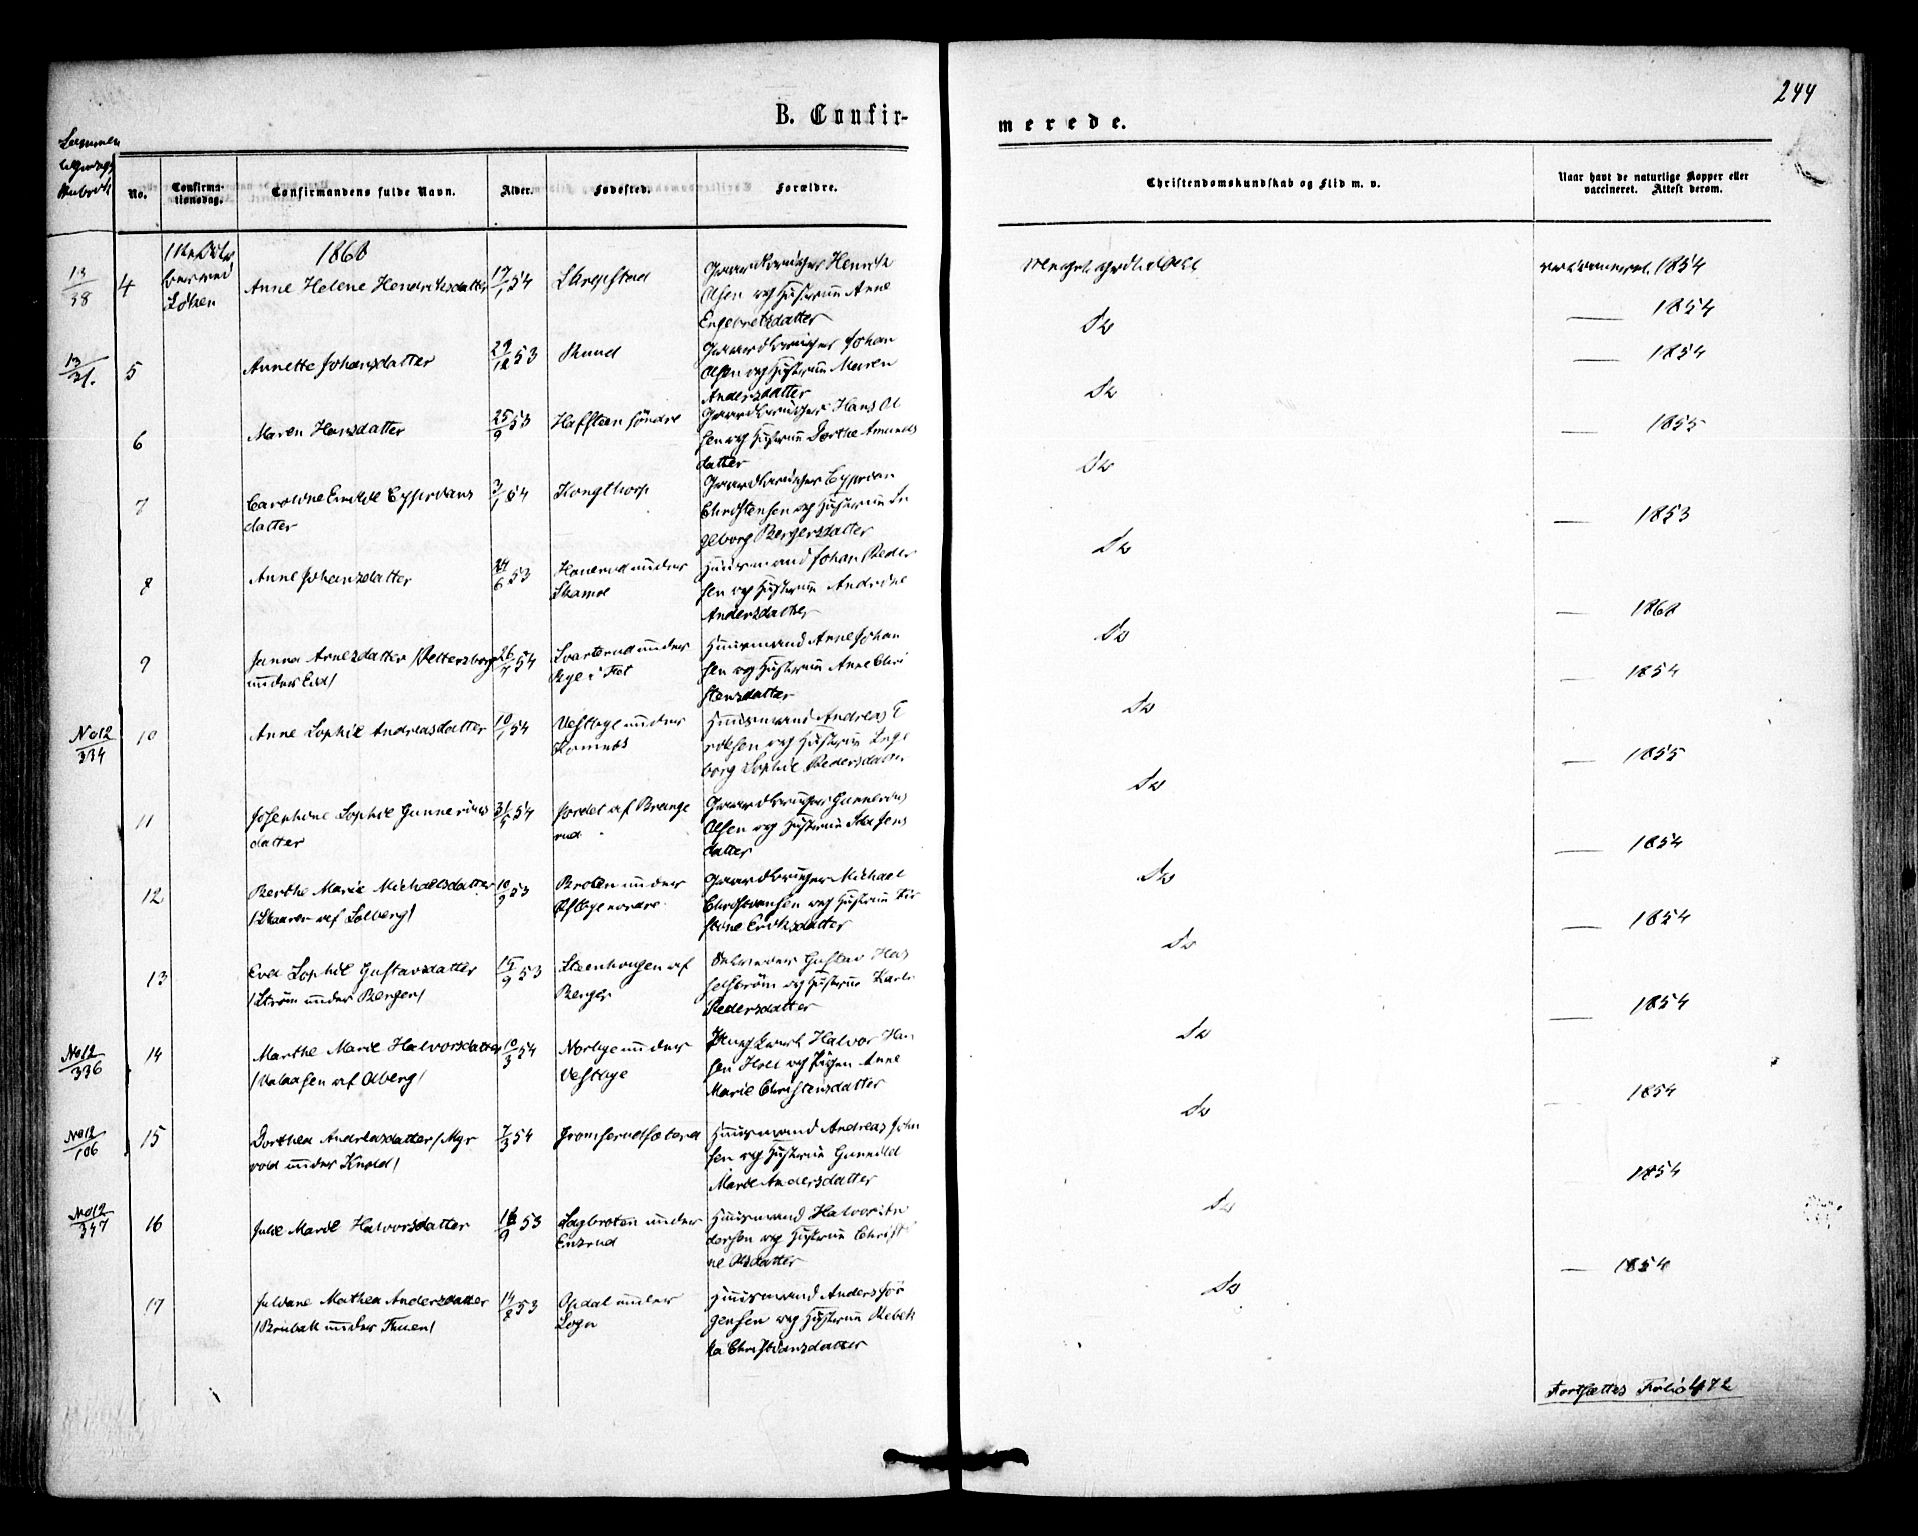 244
B. Confir-
merede.
No.
Confirma-
tionsdag.
Confirmandens fulde Navn.
Alder.
Fødested.
Forældre.
Christendomskundskab og Flid m. v.
Naar havt de naturlige Kopper eller
vaccineret. Attest derom.
1868
13/38 4 Anne Helene Hendriksdatter 17/1 54 Skrepstad Gaardbruger Henrik
Olsen og Hustrue Anne
Engebretsdatter
Meget godt
vaccineret 1854
13/31. 5 Annette Johansdatter 29/12 53 Ruud Gaardbruger Johan
Olsen og Hustrue Maren
Andersdatter
Do
1854
6 Maren Hansdatter 25/9 53 Haffsteen søndre Gaardbruger Hans Ol
sen og Hustrue Dorthe Amunds
datter
Do
1854
7 Caroline Emilie Cyprians
datter 3/1 54 Kongthorp Gaardbruger Cyprian
Christensen og Hustrue In
geborg Bergersdatter
Do
1855
8 Anne Johansdatter 24/6 53 under Huusmand Johan Peder
sen og Hustrue Andrine
Andersdatter
Do
1853
9 Janna Arnesdatter
under Eid/ 26/7 54 Svarterud under
Rye i Fet Huusmand Arne Johan
sen og Hustrue Anne Chri
stensdatter
Do
1868
No12/334 10 Anne Sophie Andreasdatter 10/1 54 Vestbye under
Huusmand Andreas E
riksen og Hustrue Inge
borg Sophie Pedersdatter
Do
1854
11 Josephine Sophie Gunnerius
datter 31/5 54 Jordet af Brange
rud Gaardbruger Gunnerius
Olsen og Hustrue Ida Jens
datter
Do
1855
12 Berthe Marie Michaelsdatter
/Skaarer af Solberg/ 10/9 53 Broten under
Østbye nordre Gaardbruger Michael
Christiansen og Hustrue Kir
stine Eriksdatter
Do
1854
13 Eva Sophie Gustavsdatter
/Strøm under Berger/ 15/9 53 Steenhougen af
Berger Gustav Has
selstrøm og Hustrue Kari
Pedersdatter
Do
1854
No12/336 14 Marthe Marie Halvorsdatter
af Olberg/ 10/3 54 Norbye under
Vestbye Ungkarl Halvor Han
sen Holt og Pigen Anne
Marie Christensdatter
Do
1854
No12/106 15 Dorthea Andreasdatter /Myr
vold under Knold/ 7/3 54 Huusmand Andreas John
sen og Hustrue Gunnild
Marie Andersdatter
Do
1854
No12/347 16 Julie Marie Halvorsdatter 16/9 53 Sagbroten under
Enerud Huusmand Halvor An
dersen og Hustrue Christi
ne Olsdatter
Do
1854
17 Juliane Mathea Andersdatter
/Brubak under Tuen/ 14/8 53 Opdal under
Logn Huusmand Anders Jør
gensen og Hustrue Rebek
ka Christiansdatter
Do
1854
Fortsættes Folio 472